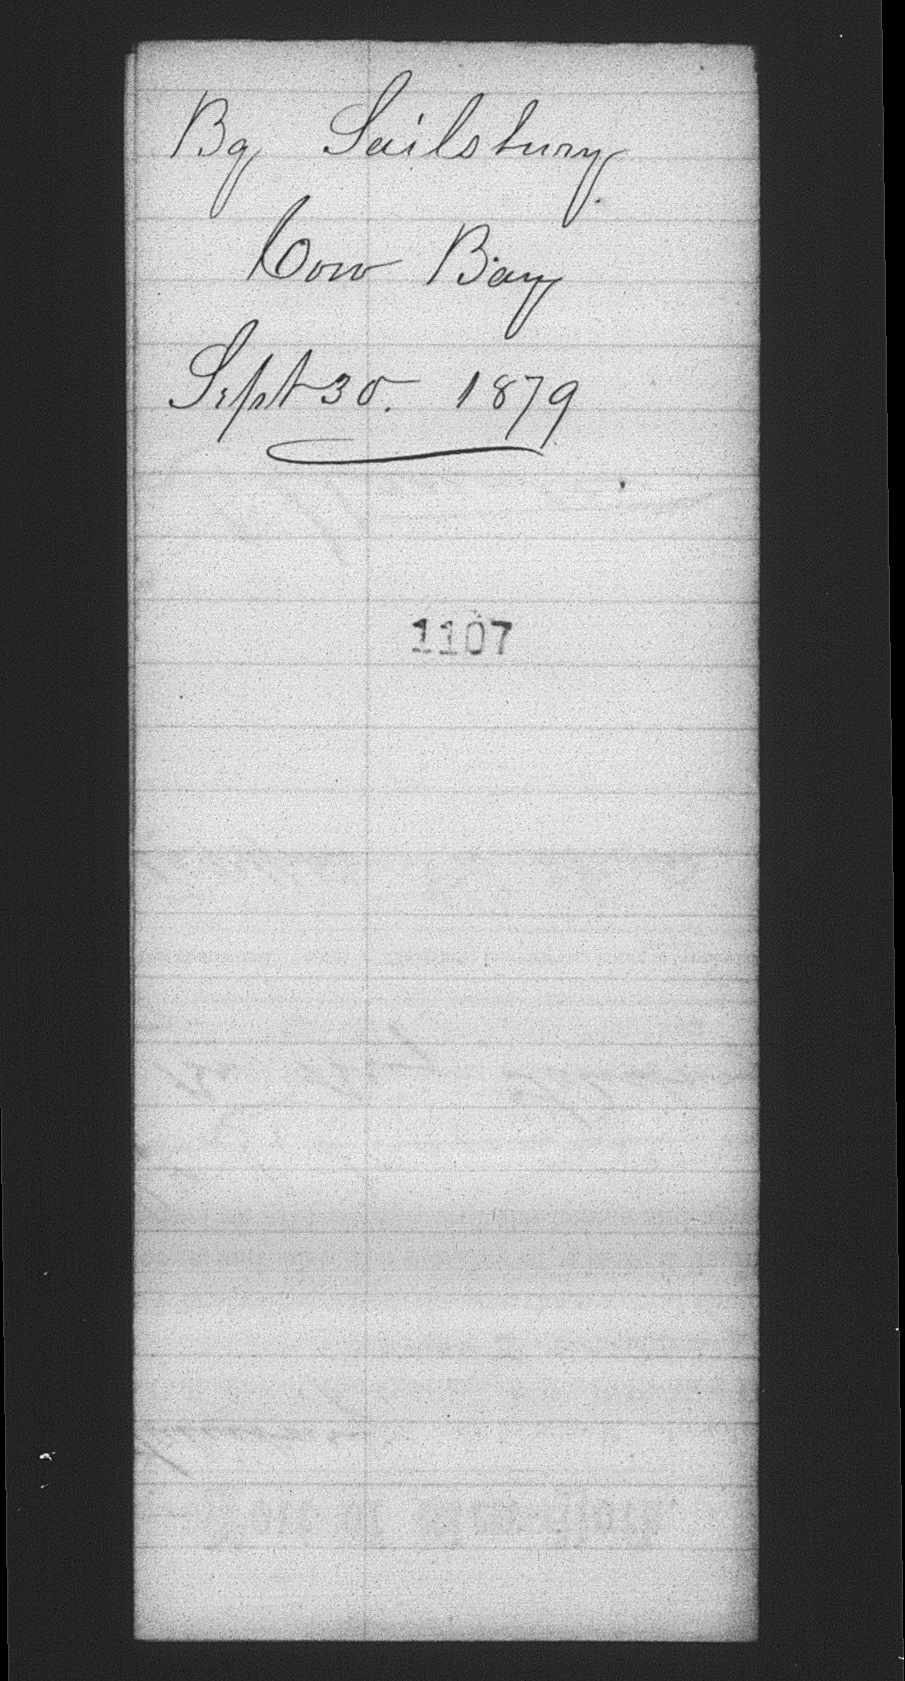 Bg Sailsbury
Cow Bay
Sept 30. 1879
1107